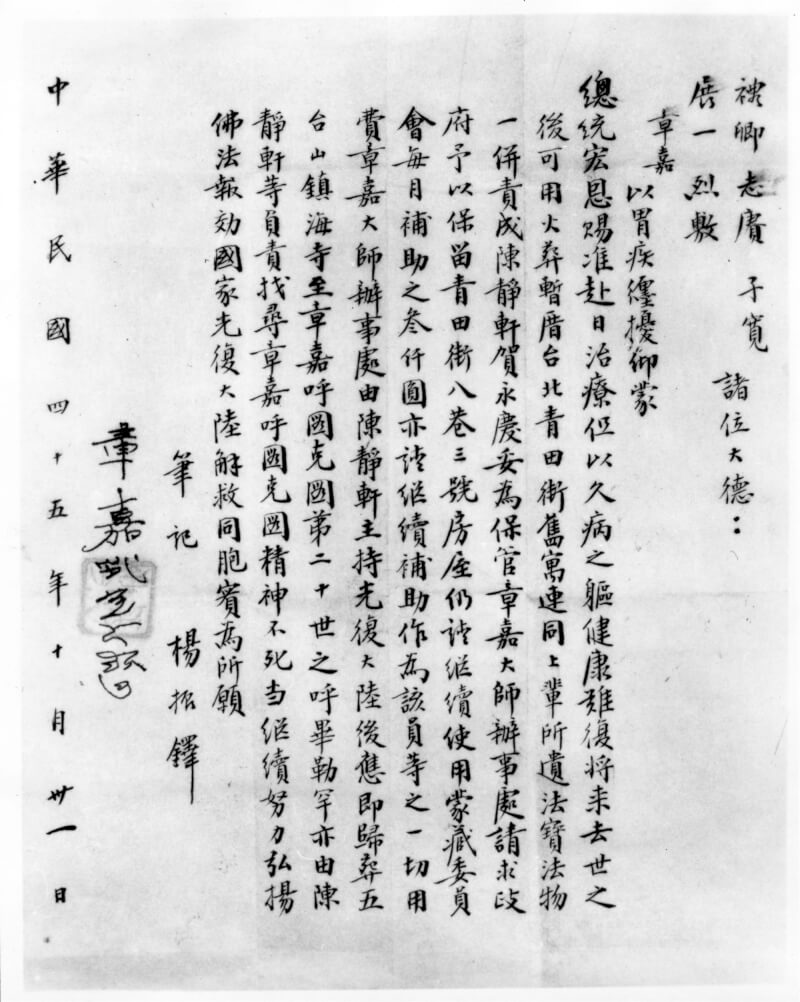 禮卿 志賡 子寬 諸位大德：
展一 烈敷
章嘉以胃疾纏擾仰蒙
總統宏恩賜准赴日治療但以久病之軀健康難復將来去世之
後可用火葬暫厝台北青田街舊寓連同上輩所遺法寶法物
一併責成陳靜軒賀永慶妥為保管章嘉大師辦事處請求政
府予以保留青田街八巷三號房屋仍請继續使用蒙藏委員
會每月補助之叁仟圓亦請继續補助作為該員等之一切用
費章嘉大師辦事處由陳靜軒主持光復大陸後應即歸葬五
台山鎮海寺至章嘉呼圖克圖第二十世之呼畢勒罕亦由陳
靜軒等負責找尋章嘉呼圖克圖精神不死当继續努力弘揚
佛法報効國家光復大陸解救同胞實為所願
筆記 楊拯鐸
章嘉
中華民國四十五年十月卅一日